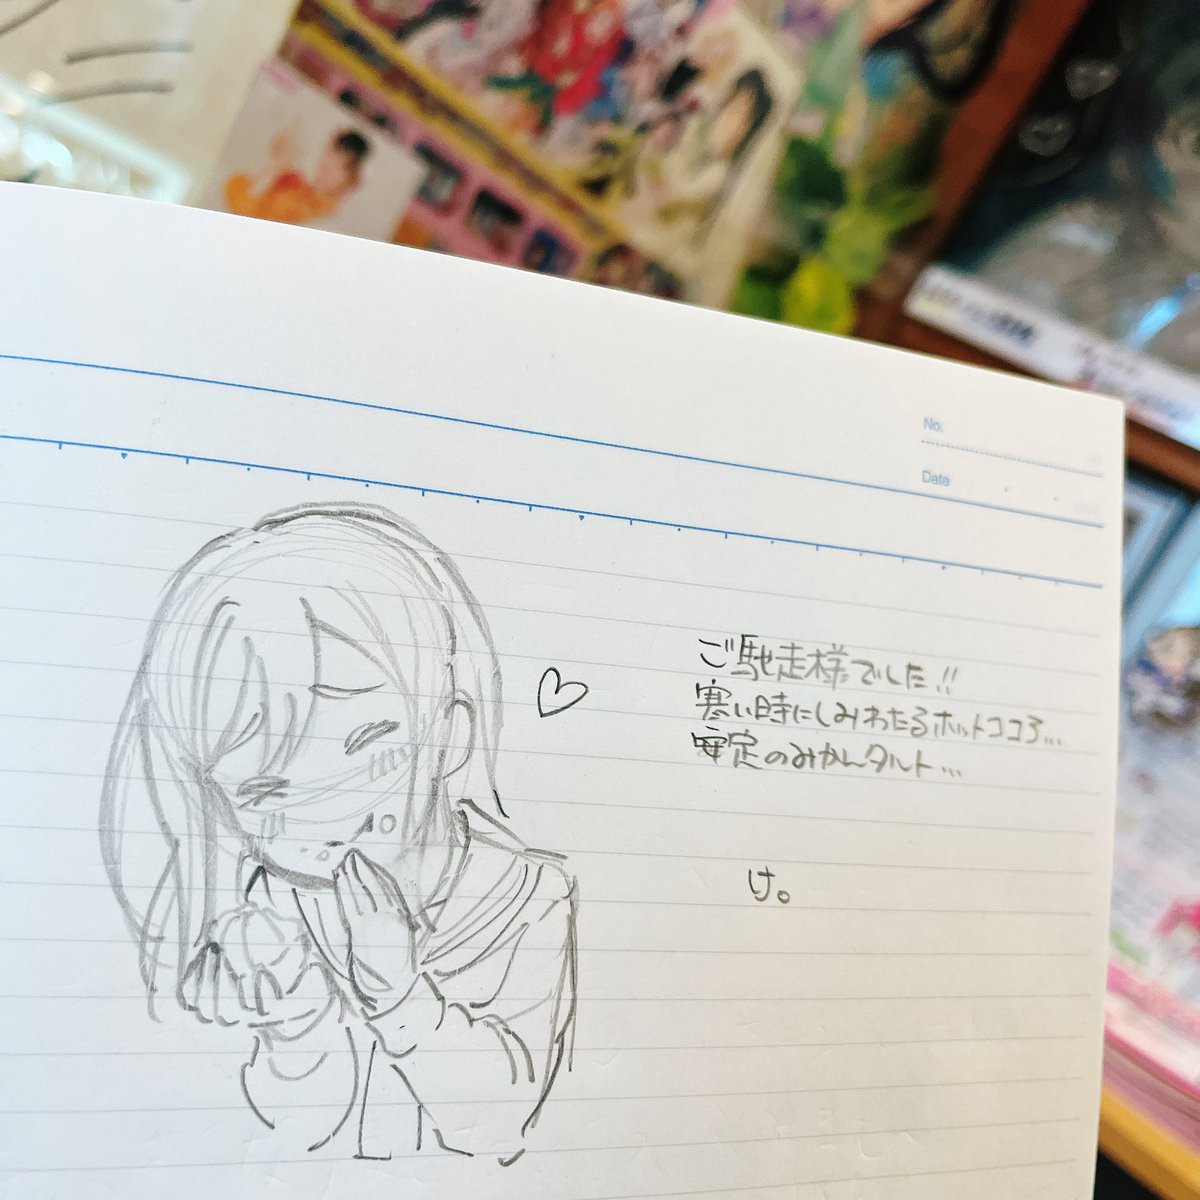 No.
Date
ご馳走様でした!!
寒い時にしみわたるホットココア...
安定のみかんタルト...
け。